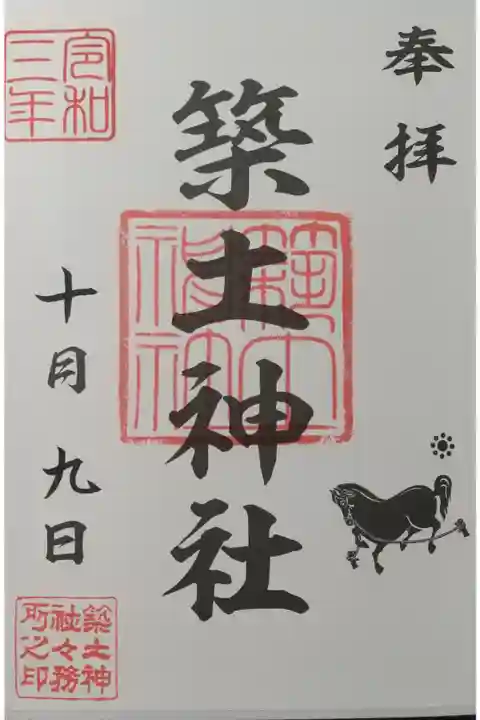 奉拝
築土神社
築土神社
令和三年
十月九日
築土神社々務所之印